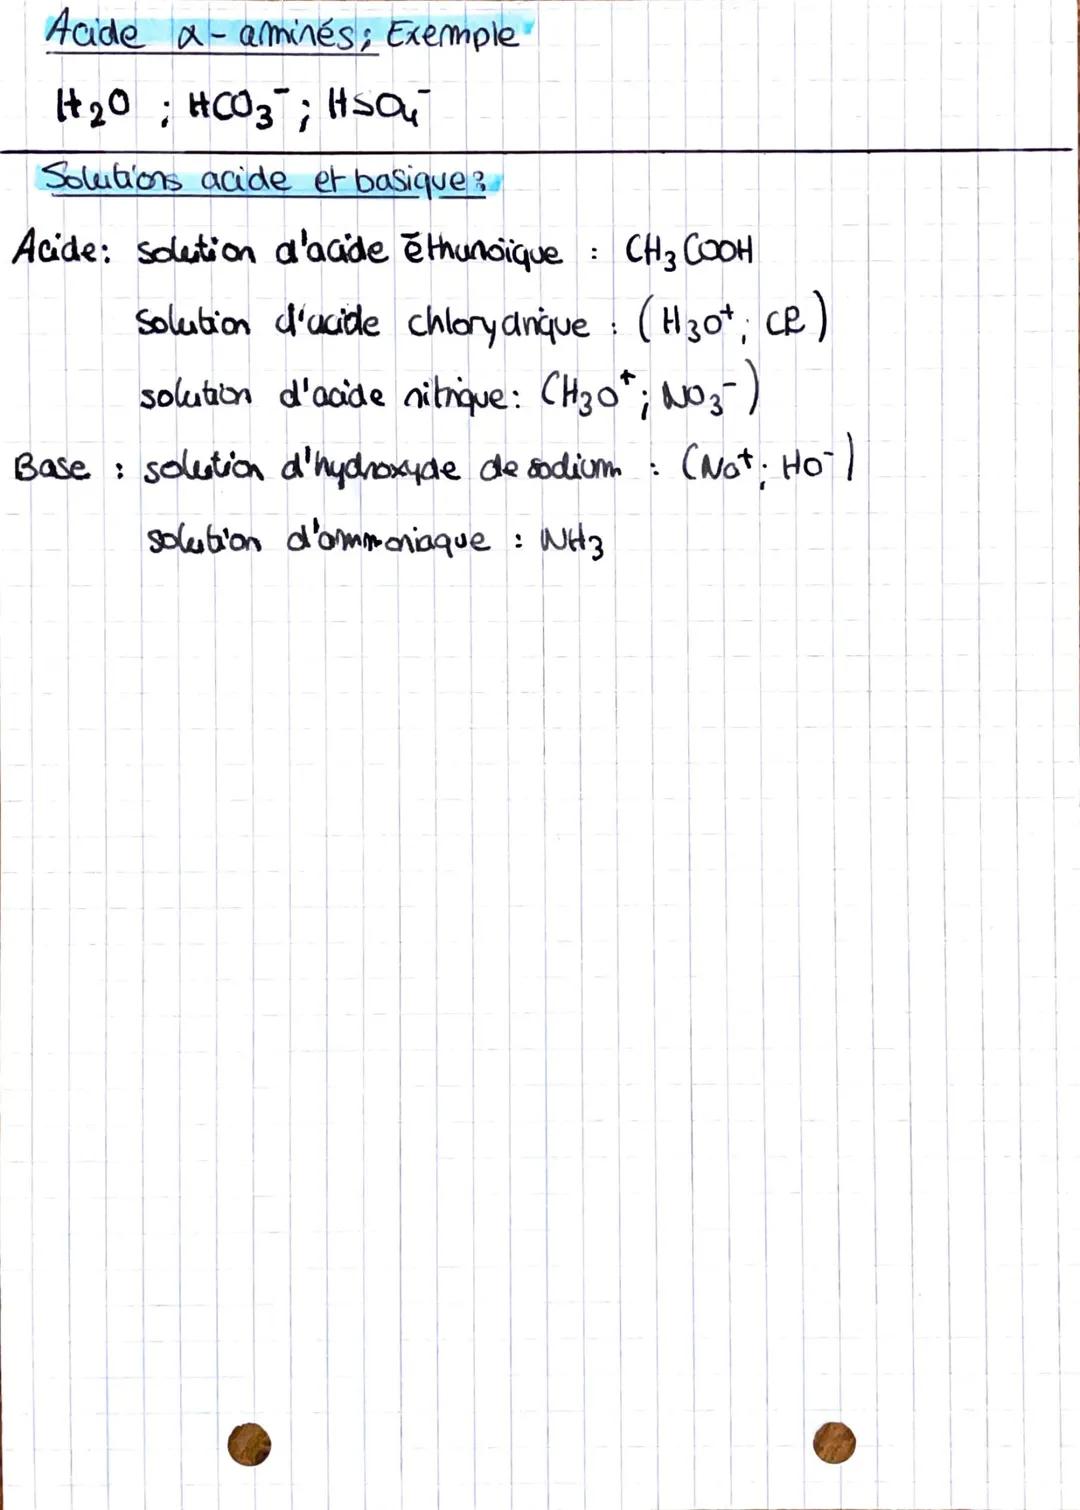 Acide α-aminés; Exemple
H₂O ; HCO₃⁻ ; HSO₄⁻
Solutions acide et basique :
Acide : solution d'acide éthunoïque : CH₃COOH
solution d'acide chlorydrique : (H₃O⁺; Cl)
solution d'acide nitrique : (H₃O⁺; NO₃⁻)
Base : solution d'hydroxyde de sodium : (Na⁺; HO⁻)
solution d'ammoniaque : NH₃